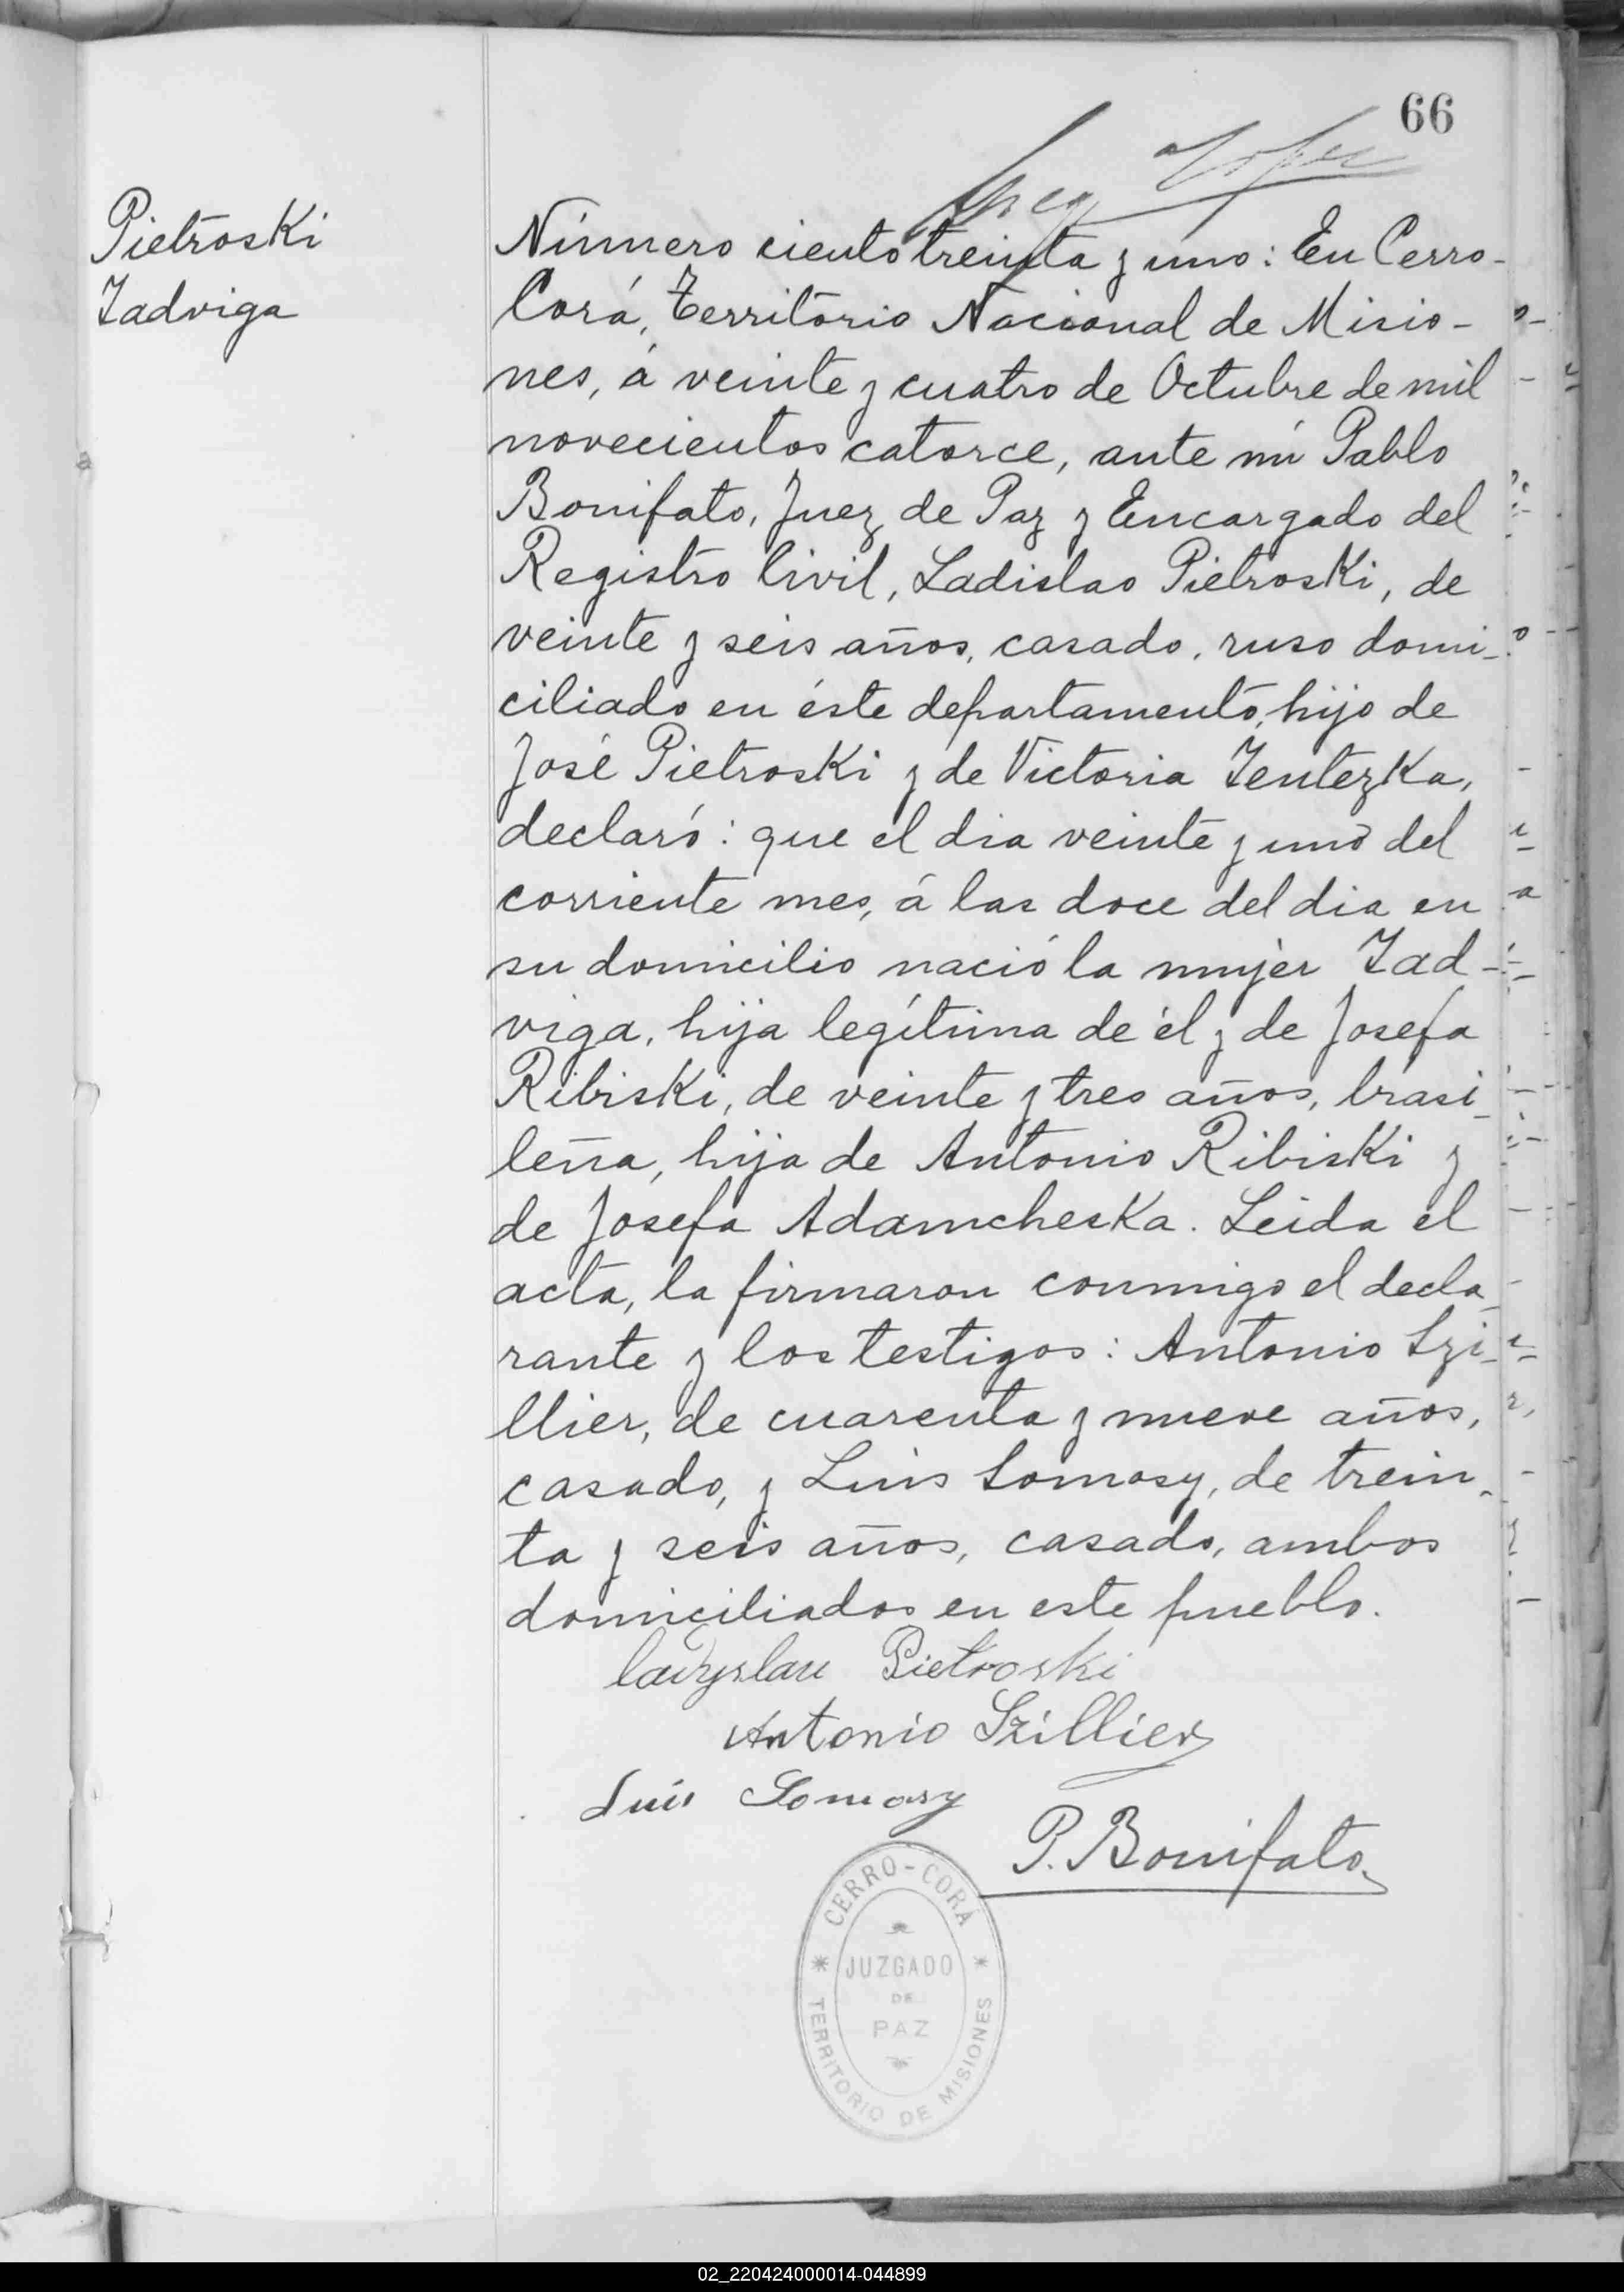 66
Pietroski
Iadviga
Número ciento treinta y uno: En Cerro-
Corá, Territorio Nacional de Misio-
nes, á veinte y cuatro de Octubre de mil
novecientos catorce, ante mi Pablo
Bonifato, Juez de Paz y Encargado del
Registro Civil, Ladislao Pietroski, de
veinte y seis años, casado, ruso domi-
ciliado en éste departamento, hijo de
José Pietroski y de Victoria Ientezka,
declaró: que el dia veinte y uno del
corriente mes, á las doce del dia en
su domicilio nació la mujer Iad-
viga, hija legítima de él y de Josefa
Ribiski, de veinte y tres años, brasi-
leña, hija de Antonio Ribiski y
de Josefa Adamcheska. Leida el
acta, la firmaron conmigo el decla-
rante y los testigos: Antonio Szi-
llier, de cuarenta y nueve años,
casado, y Luis Somosy, de trein-
ta y seis años, casado, ambos
domiciliados en este pueblo.
Pietroski
Antonio Szillier
Luis Somosy
P. Bonifato
CERRO-CORÁ
JUZGADO
DE
PAZ
TERRITORIO DE MISIONES
02_220424000014-044899